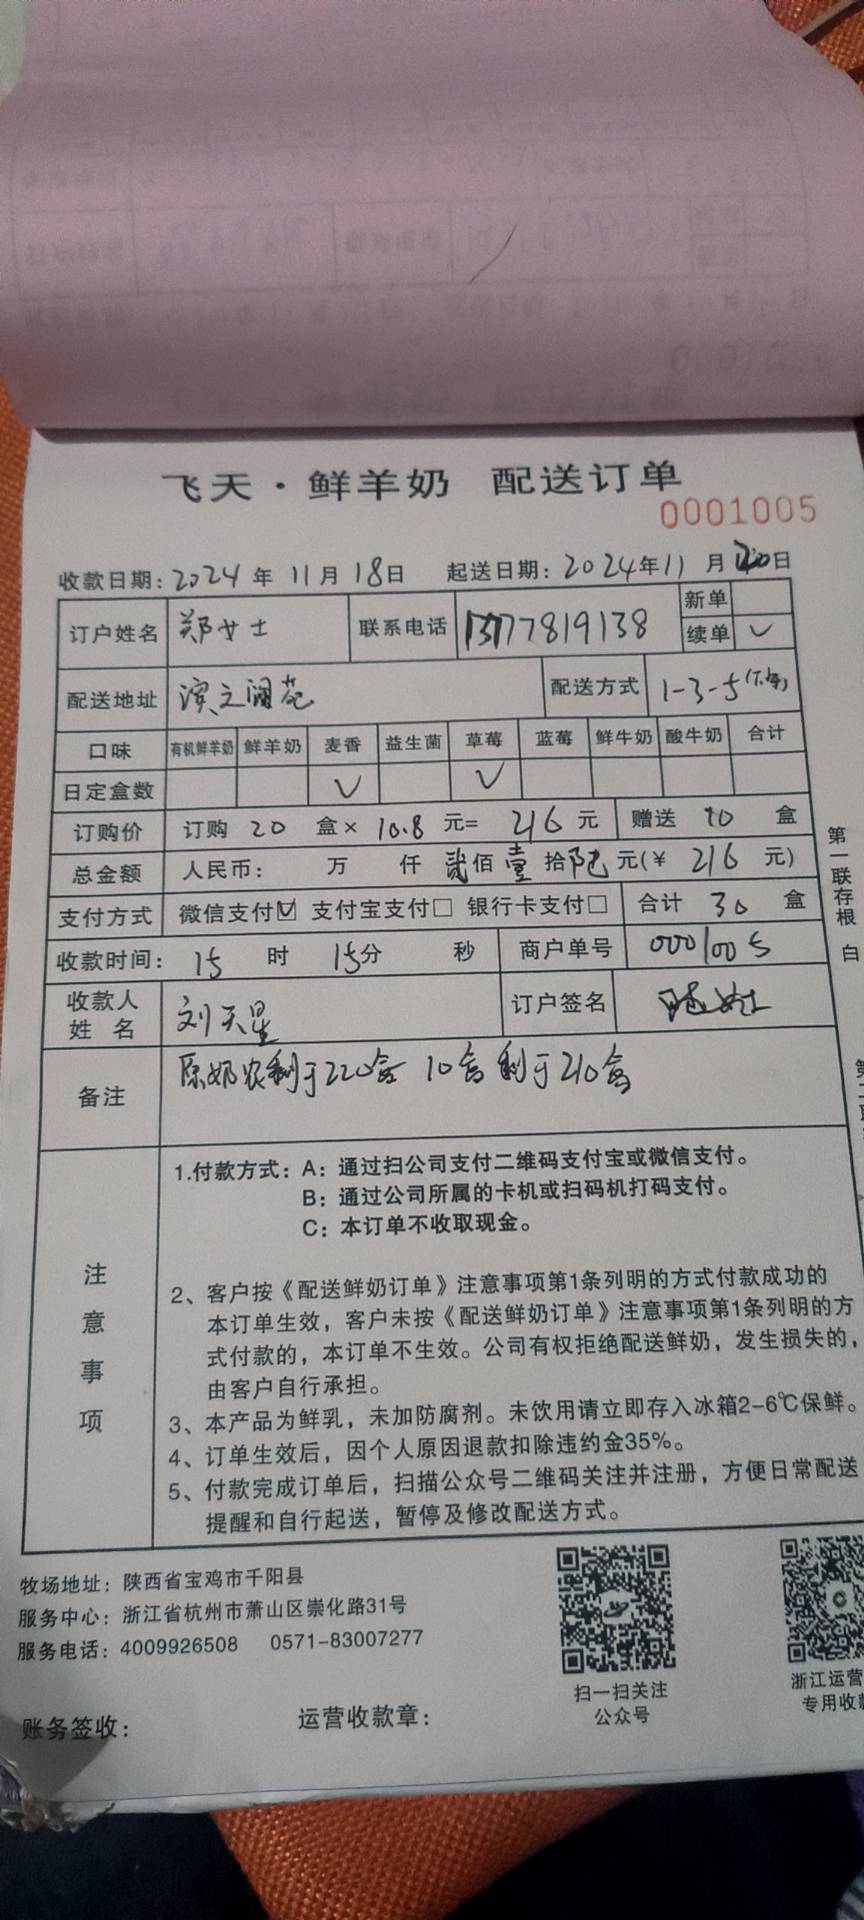 飞天·鲜羊奶 配送订单
0001005
收款日期：2024年11月18日 起送日期：2024年11月20日
订户姓名 郑女士 联系电话 13777819138 新单
续单 ✓
配送地址 滨之澜苑 配送方式 1-3-5
口味 有机鲜羊奶 鲜羊奶 麦香 益生菌 草莓 蓝莓 鲜牛奶 酸牛奶 合计
日定盒数 ✓ ✓
订购价 订购 20 盒× 10.8 元= 216 元 赠送 10 盒
总金额 人民币： 万 仟 贰佰 壹拾 陆元(￥ 216 元)
支付方式 微信支付☑ 支付宝支付□ 银行卡支付□ 合计 30 盒
收款时间： 15 时 15分 秒 商户单号 0001005
收款人姓名 刘天星 订户签名
备注 原奶农剩于220盒 10盒剩于210盒
注意事项
1.付款方式：A：通过扫公司支付二维码支付宝或微信支付。
B：通过公司所属的卡机或扫码机打码支付。
C：本订单不收取现金。
2、客户按《配送鲜奶订单》注意事项第1条列明的方式付款成功的
本订单生效，客户未按《配送鲜奶订单》注意事项第1条列明的方
式付款的，本订单不生效。公司有权拒绝配送鲜奶，发生损失的，
由客户自行承担。
3、本产品为鲜乳，未加防腐剂。未饮用请立即存入冰箱2-6℃保鲜。
4、订单生效后，因个人原因退款扣除违约金35%。
5、付款完成订单后，扫描公众号二维码关注并注册，方便日常配送
提醒和自行起送，暂停及修改配送方式。
第一联存根 白
牧场地址：陕西省宝鸡市千阳县
服务中心：浙江省杭州市萧山区崇化路31号
服务电话：4009926508 0571-83007277
扫一扫关注
公众号
浙江运营
专用收款
账务签收： 运营收款章：